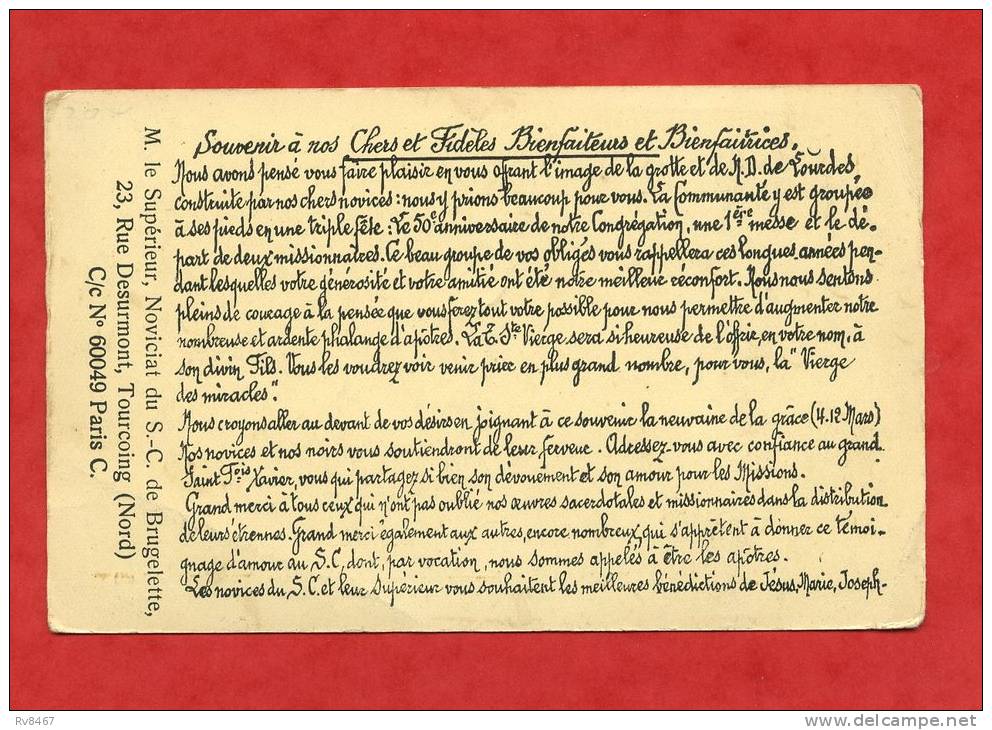 Souvenir à nos Chers et Fidèles Bienfaiteurs et Bienfaitrices.
Nous avons pensé vous faire plaisir en vous offrant l'image de la grotte et de N.D. de Lourdes,
construite par nos chers novices : nous y prions beaucoup pour vous. La Communauté y est groupée
à ses pieds en une triple fête : Le 50e anniversaire de notre Congrégation, une 1ère messe et le dé-
part de deux missionnaires. Ce beau groupe de vos obligés vous rappellera ces longues années pen-
dant lesquelles votre générosité et votre amitié ont été notre meilleur réconfort. Nous nous sentons
pleins de courage à la pensée que vous ferez tout votre possible pour nous permettre d'augmenter notre
nombreuse et ardente phalange d'apôtres. La T. Ste Vierge sera si heureuse de l'offrir, en votre nom, à
son divin Fils. Vous les voudrez voir venir prier en plus grand nombre, pour vous, la "Vierge
des miracles".
Nous croyons aller au devant de vos désirs en joignant à ce souvenir la neuvaine de la grâce (4.12 Mars)
Nos novices et nos noirs vous soutiendront de leur ferveur. Adressez-vous avec confiance au grand
Saint Fois Xavier, vous qui partagez si bien son dévouement et son amour pour les Missions.
Grand merci à tous ceux qui n'ont pas oublié nos œuvres sacerdotales et missionnaires dans la distribution
de leurs étrennes. Grand merci également aux autres, encore nombreux, qui s'apprêtent à donner ce témoi-
gnage d'amour au S.C, dont, par vocation, nous sommes appelés à être les apôtres.
Les novices du S.C. et leur Supérieur vous souhaitent les meilleures bénédictions de Jésus, Marie, Joseph-
M. le Supérieur, Noviciat du S.-C. de Brugelette,
23, Rue Desurmont, Tourcoing (Nord)
C/c N° 60049 Paris C.
Rv8467
http://www.delcampe.net